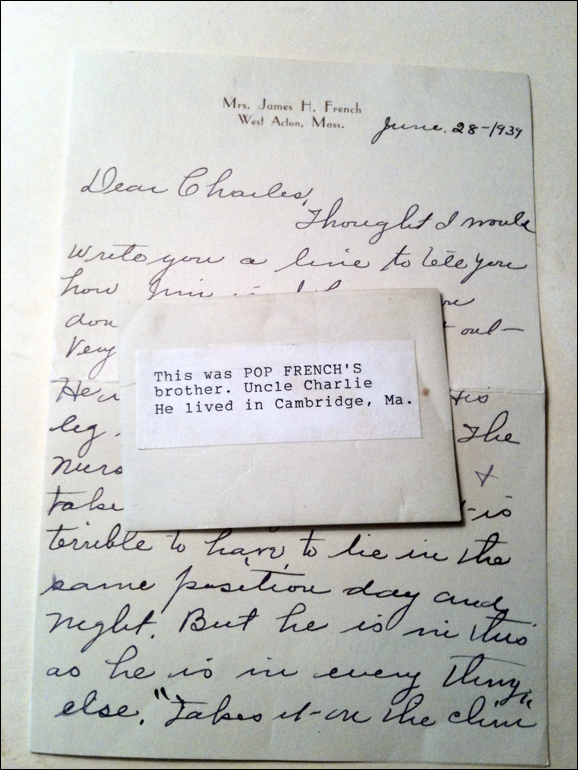 Mrs. James H. French
West Acton, Mass.
June. 28-1939
Dear Charles,
Thought I would
write you a line to tell you
how Jim is
don out-
Very
His
leg. The
nurs &
take is
terrible to have to lie in the
same position day and
night. But he is in this
as he is in every thing
else, "takes it on the chin"
This was POP FRENCH'S
brother. Uncle Charlie
He lived in Cambridge, Ma.